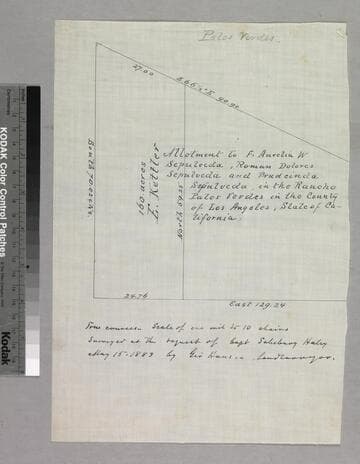 Palos Verdes
27.00
S 66½° E 90.90
South 70.22½
160 acres
L. Kettler
North
Allotment to F. Aurelia W
Sepulveda, Roman Dolores
Sepulveda and Prudcinda
Sepulveda, in the Rancho
Palos Verdes in the County
of Los Angeles, State of Ca-
lifornia.
24.76
East 129.24
Scale of one inch to 10 chains
Surveyed at the request of Capt Salisbury Haley
May 15-1883 by Geo Hansen Landsurveyor.
KODAK Color Control Patches
Kodak